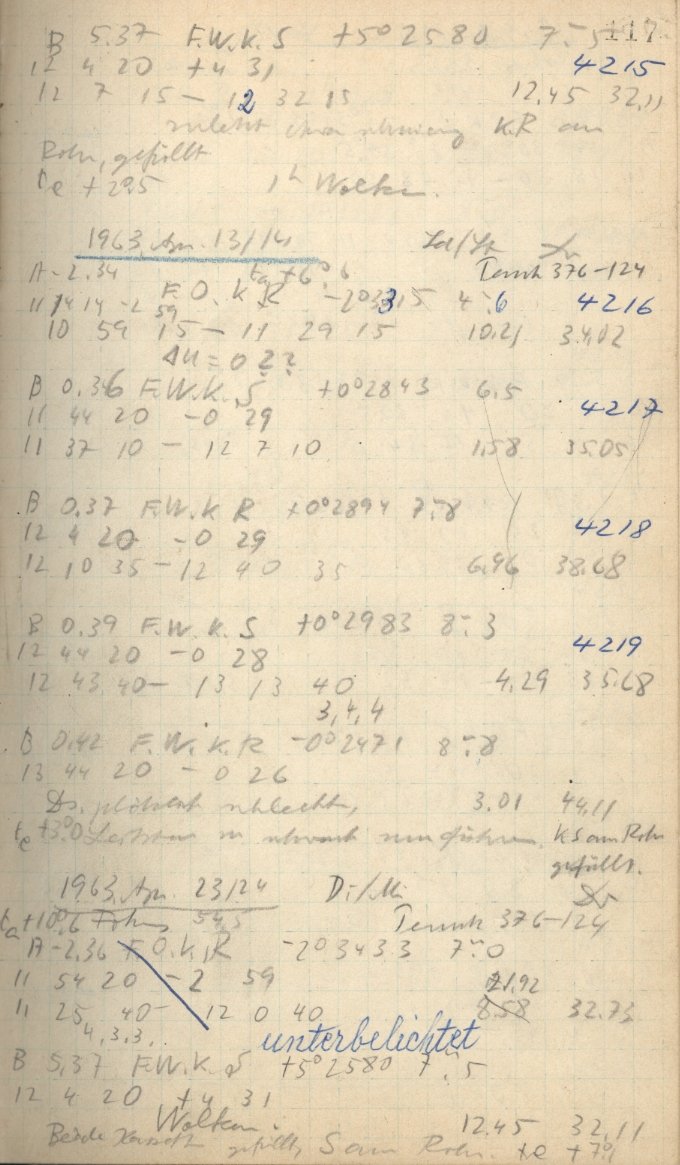 B 5.37 F.W.K.S +5° 2580 7.m5 117
12 4 20 +4 31 4215
12 7 15 — 12 32 15 12.45 32.11
zuletzt K.R am
Rohr, gefüllt
te +2°.5 1h Wolken.
1963, Apr. 13/14
A-2.34 ta +6°.6 Tennh 376-124
F.O.K.R -2° 3315 4.m6 4216
11 14 14 -2 59
10 59 15 — 11 29 15 10.21 34.02
Δu = 0 ??
B 0.36 F.W.K.S +0° 2843 6.5
11 44 20 -0 29 4217
11 37 10 — 12 7 10 1.58 35.05
B 0.37 F.W.K R +0° 2894 7.m8
12 4 20 -0 29 4218
12 10 35 — 12 40 35 6.96 38.68
B 0.39 F.W.K.S +0° 2983 8.m3
12 44 20 -0 28 4219
12 43 40 — 13 13 40 4.29 35.68
3,4,4
B 0.42 F.W.K.R -0° 2471 8.m8
13 44 20 -0 26
plötzlich schlecht, 3.01 44.11
te +3°.0 K S am Rohr
gefüllt.
1963, Apr. 23/24 Di/Mi
ta +10°.6 54,5 Tennh 376-124
A-2.36 F.O.K.R -2° 3433 7.m0
11 54 20 -2 59
21.92
11 25 40 — 12 0 40 8.58 32.73
4,3,3,
unterbelichtet
B 5.37 F.W.K.S +5° 2580 7.m5
12 4 20 +4 31
Wolken. 12.45 32.11
Beide gefüllt, S am Rohr. te +7°.1